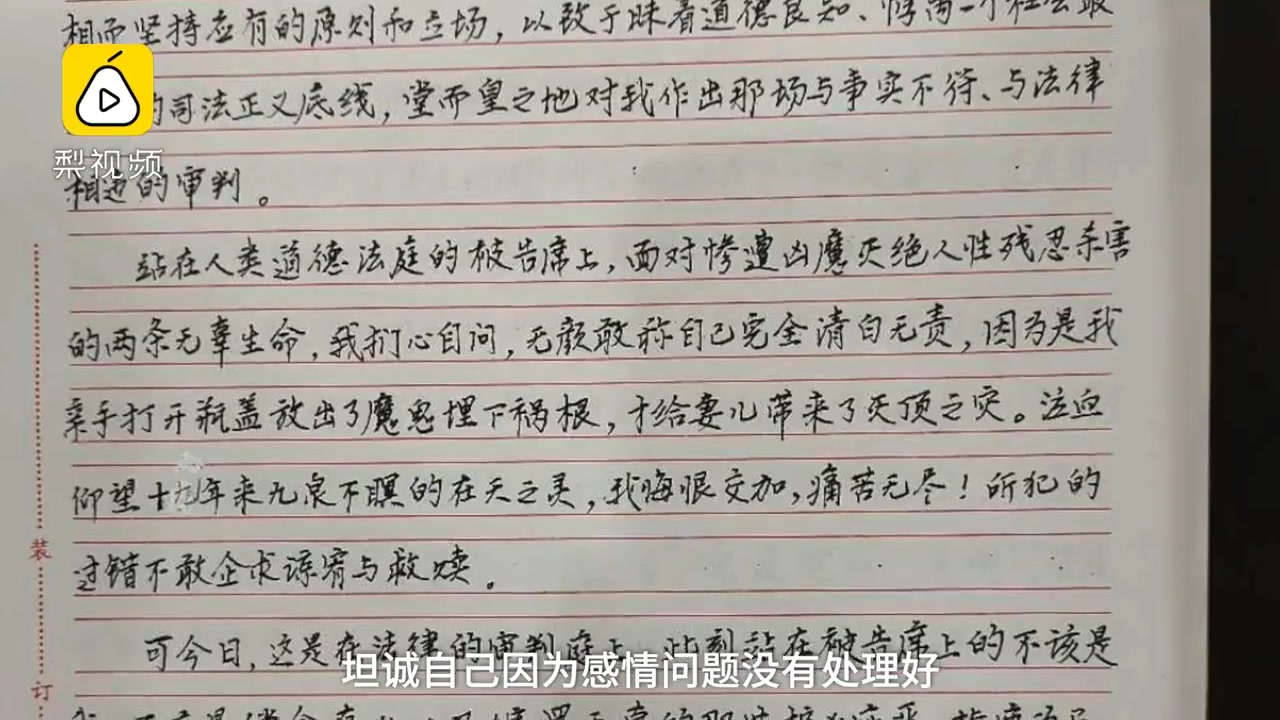 相而坚持应有的原则和立场，以致于昧着道德良知、悖离一个社会最
的司法正义底线，堂而皇之地对我作出那场与事实不符、与法律
梨视频
相违的审判。
站在人类道德法庭的被告席上，面对惨遭凶魔灭绝人性残忍杀害
的两条无辜生命，我扪心自问，无颜敢称自己完全清白无责，因为是我
亲手打开瓶盖放出了魔鬼埋下祸根，才给妻儿带来了灭顶之灾。泣血
仰望十九年来九泉不瞑的在天之灵，我悔恨交加，痛苦无尽！所犯的
过错不敢企求谅宥与救赎。
装
可今日，这是在法律的审判庭上，此刻站在被告席上的不该是
坦诚自己因为感情问题没有处理好
订